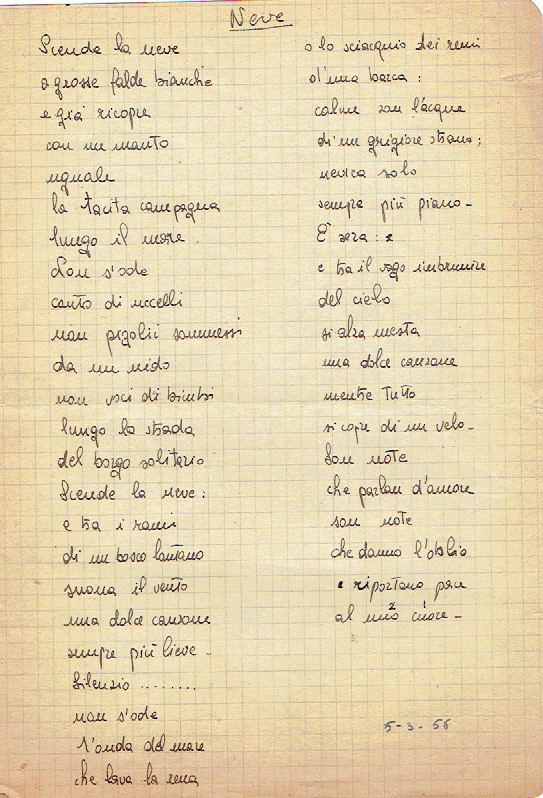 Neve
Scende la neve
a grosse falde bianche
e già ricopre
con un manto
uguale
la tacita campagna
lungo il mare.
Non s'ode
canto di uccelli
non pigolii sommessi
da un nido
non voci di bimbi
lungo la strada
del borgo solitario
Scende la neve:
e tra i rami
di un bosco lontano
suona il vento
una dolce canzone
sempre più lieve -
Silenzio ........
non s'ode
l'onda del mare
che lava la rena
o lo sciacquio dei remi
d'una barca:
calme son l'acque
di un grigiore strano;
nevica solo
sempre più piano -
È sera: e
e tra il vago imbrunire
del cielo
si alza mesta
una dolce canzone
mentre tutto
si copre di un velo -
Son note
che parlan d'amore
son note
che danno l'oblio
e riportano pace
al mio cuore -
5-3-56